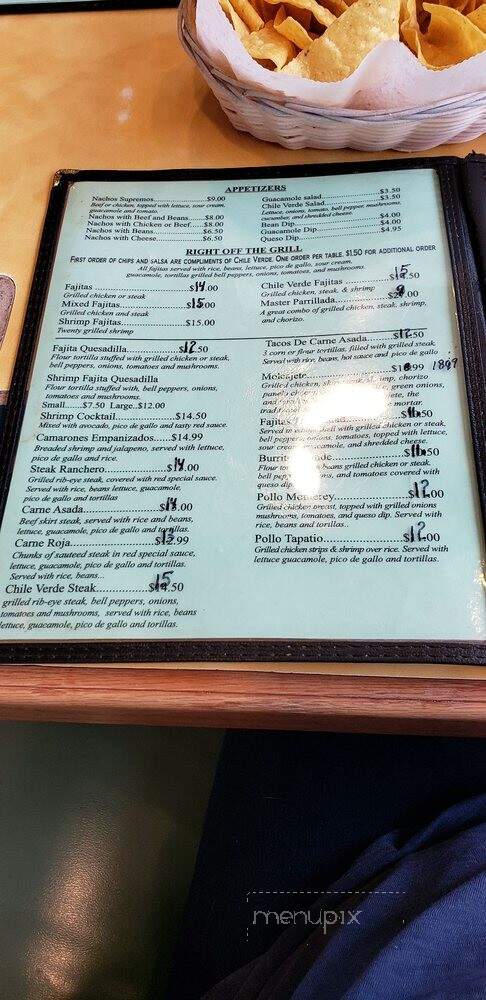 APPETIZERS
Nachos Supremos...$9.00
Beef or chicken, topped with lettuce, sour cream,
guacamole and tomato.
Nachos with Beef and Beans...$8.00
Nachos with Chicken or Beef...$8.00
Nachos with Beans...$6.50
Nachos with Cheese...$6.50
Guacamole salad...$3.50
Chile Verde Salad...$3.50
Lettuce, onions, tomato, bell pepper, mushrooms,
cucumber, and shredded cheese.
Bean Dip...$4.00
Guacamole Dip...$4.00
Queso Dip...$4.95
RIGHT OFF THE GRILL
FIRST ORDER OF CHIPS AND SALSA ARE COMPLIMENTS OF CHILE VERDE. ONE ORDER PER TABLE. $1.50 FOR ADDITIONAL ORDER
All fajitas served with rice, beans, lettuce, pico de gallo, sour cream,
guacamole, tortillas grilled bell peppers, onions, tomatoes, and mushrooms.
Fajitas...$14.00
Grilled chicken or steak
Mixed Fajitas...$15.00
Grilled chicken and steak
Shrimp Fajitas...$15.00
Twenty grilled shrimp
Chile Verde Fajitas...$15.50
Grilled chicken, steak, & shrimp
Master Parrillada...
A great combo of grilled chicken, steak, shrimp,
and chorizo.
Fajita Quesadilla...$12.50
Flour tortilla stuffed with grilled chicken or steak,
bell peppers, onions, tomatoes and mushrooms.
Shrimp Fajita Quesadilla
Flour tortilla stuffed with, bell peppers, onions,
tomatoes and mushrooms.
Small...$7.50 Large..$12.00
Shrimp Cocktail...$14.50
Mixed with avocado, pico de gallo and tasty red sauce.
Camarones Empanizados...$14.99
Breaded shrimp and jalapeno, served with lettuce,
pico de gallo and rice.
Steak Ranchero...$14.00
Grilled rib-eye steak, covered with red special sauce.
Served with rice, beans lettuce, guacamole,
pico de gallo and tortillas
Carne Asada...$14.00
Beef skirt steak, served with rice and beans,
lettuce, guacamole, pico de gallo and tortillas.
Carne Roja...$13.99
Chunks of sauteed steak in red special sauce,
lettuce, guacamole, pico de gallo and tortillas.
Served with rice, beans...
Chile Verde Steak...$15.50
grilled rib-eye steak, bell peppers, onions,
tomatoes and mushrooms, served with rice, beans
lettuce, guacamole, pico de gallo and tortillas.
Tacos De Carne Asada...$12.50
3 corn or flour tortillas, filled with grilled steak.
Served with rice, beans, hot sauce and pico de gallo
Molcajete... 1899
Grilled chicken, shrimp, chorizo
green onions,
the
mortar.
Fajitas
Served in with grilled chicken or steak,
bell peppers, onions, tomatoes, topped with lettuce,
sour cream, guacamole, and shredded cheese.
Burrito
Flour beans grilled chicken or steak.
bell peppers, onions, and tomatoes covered with
queso dip.
Pollo Monterey...$12.00
Grilled chicken breast, topped with grilled onions
mushrooms, tomatoes, and queso dip. Served with
rice, beans and tortillas..
Pollo Tapatio...$12.00
Grilled chicken strips & shrimp over rice. Served with
lettuce guacamole, pico de gallo and tortillas.
menupix